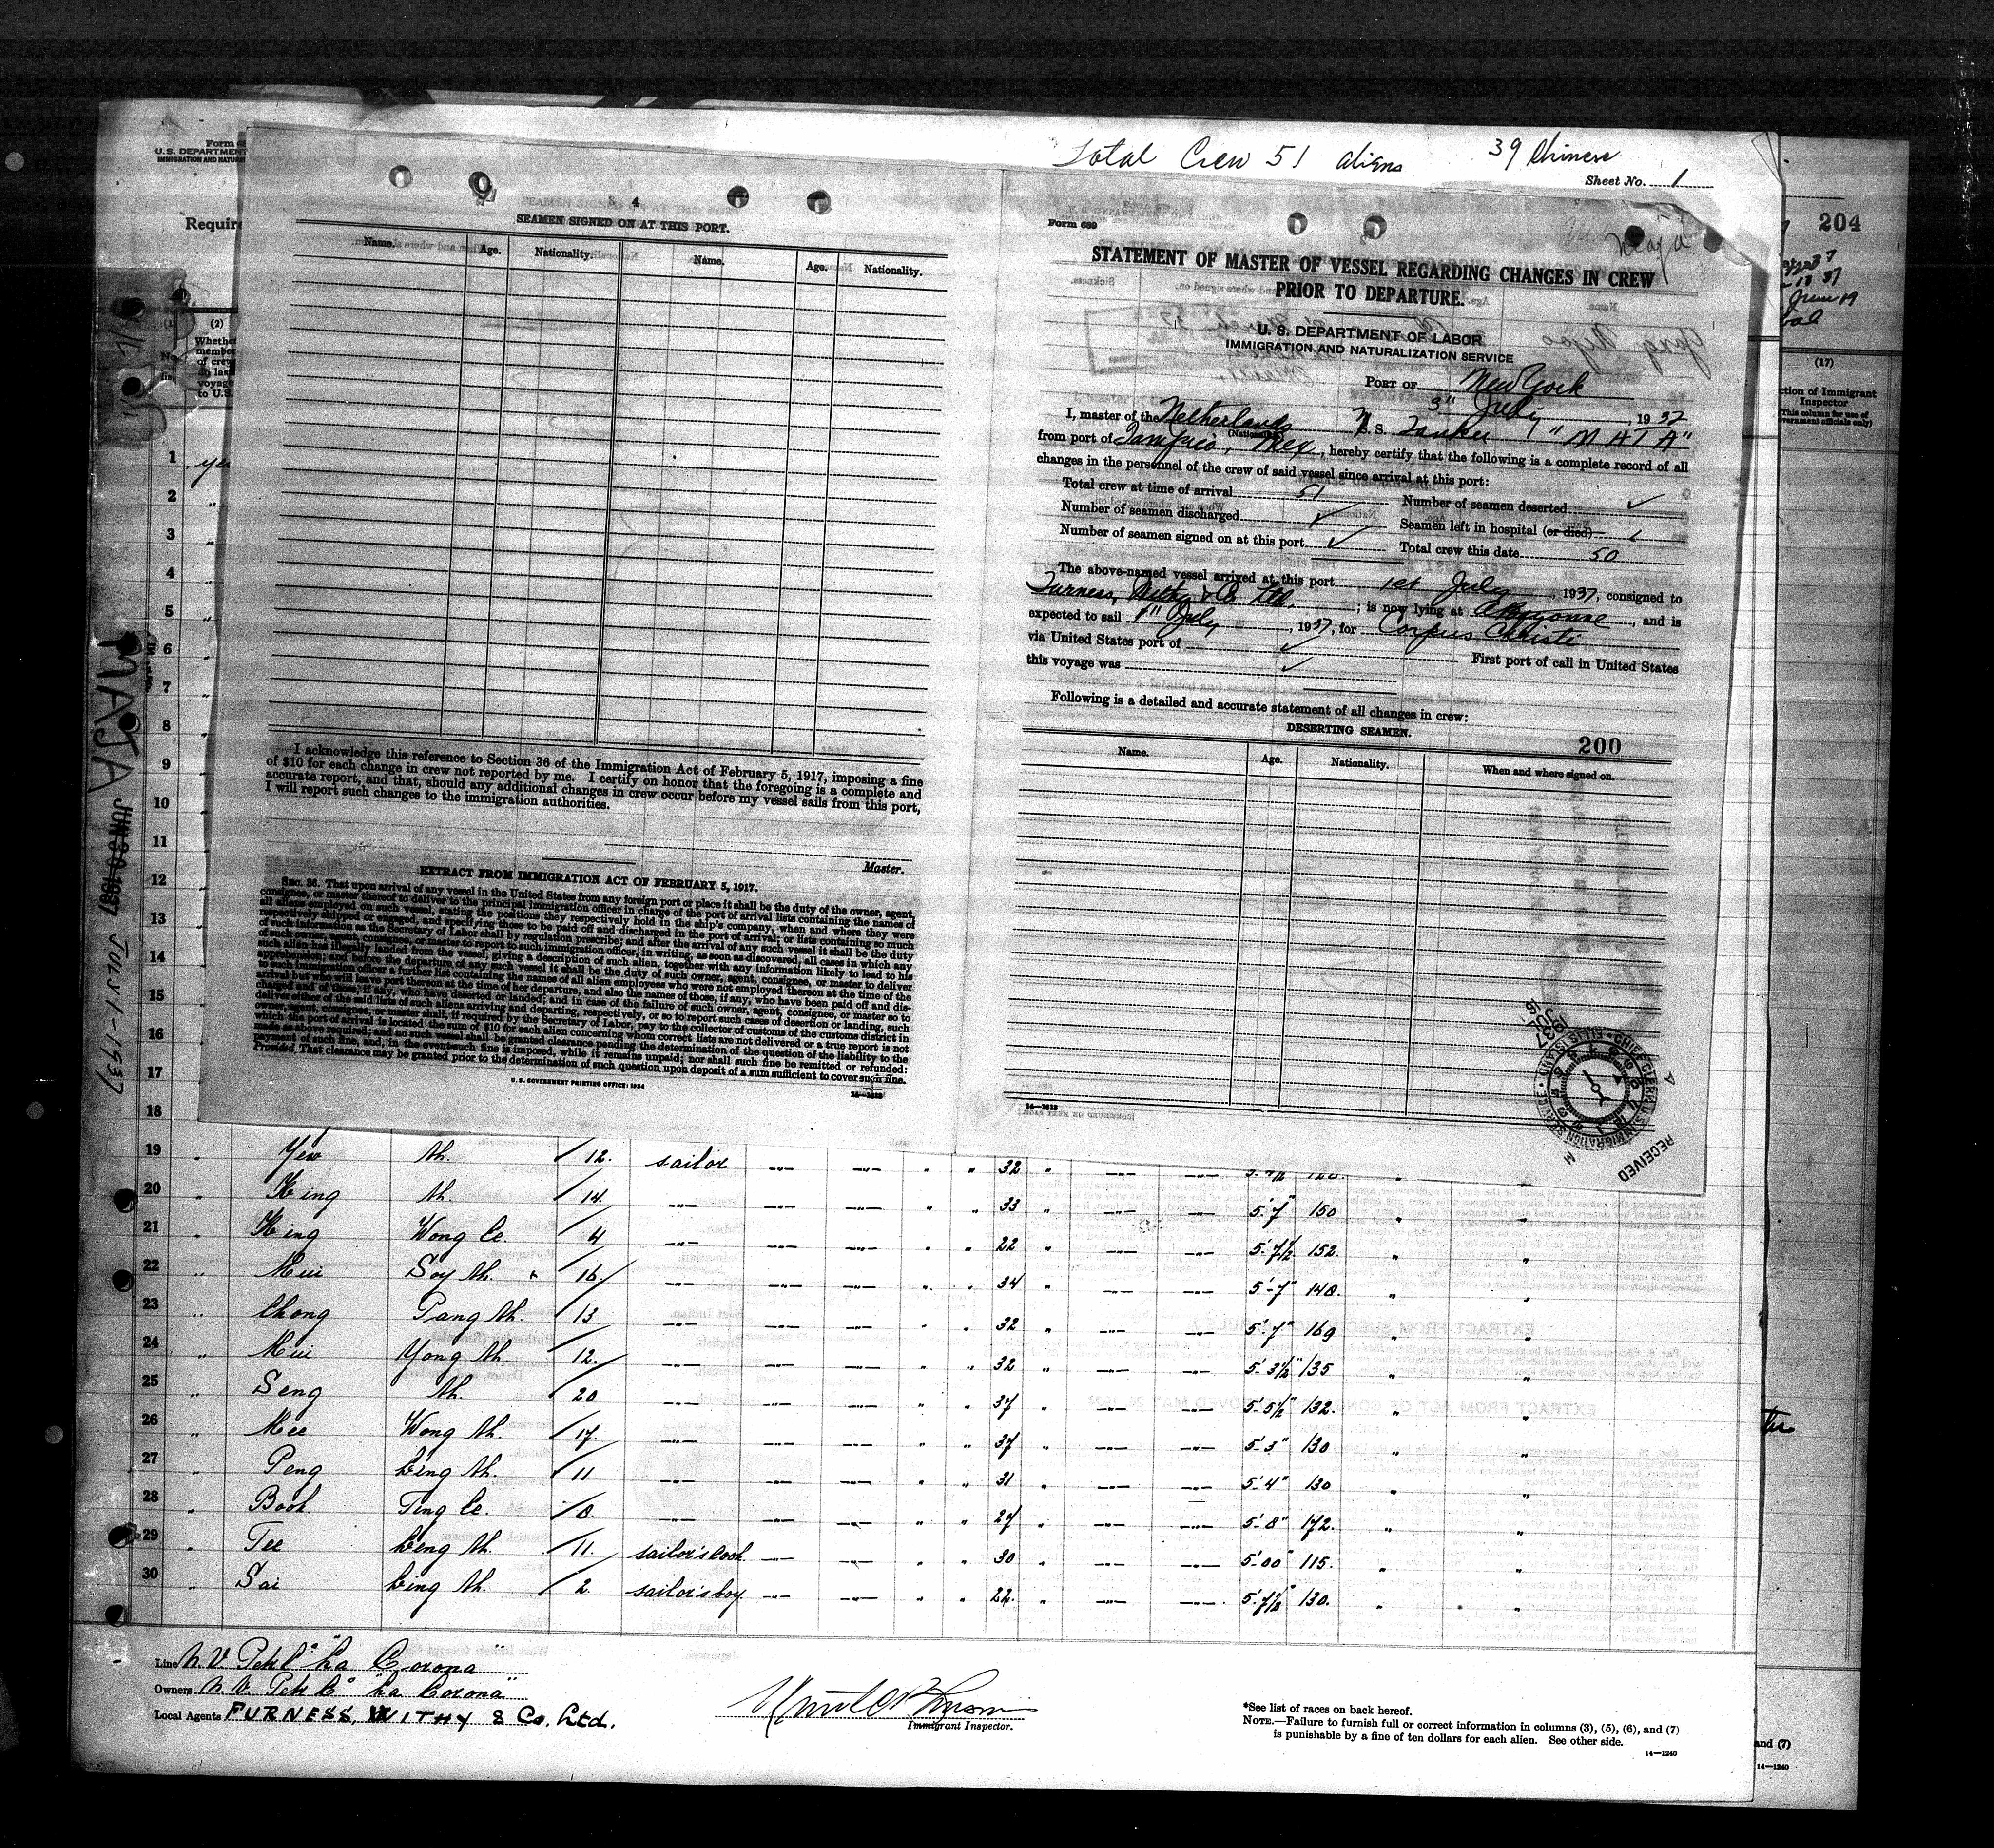 Total Crew 51 aliens 39 Chinese
Sheet No. 1
204
U. S. DEPARTMENT
IMMIGRATION AND
(2)
Whether
member
of crew
on last
voyage
to U.S.
(17)
Inspector
4
SEAMEN SIGNED ON AT THIS PORT.
Name. Age. Nationality. Name. Age. Nationality.
I acknowledge this reference to Section 36 of the Immigration Act of February 5, 1917, imposing a fine
of $10 for each change in crew not reported by me. I certify on honor that the foregoing is a complete and
accurate report, and that, should any additional changes in crew occur before my vessel sails from this port,
I will report such changes to the immigration authorities.
Master.
EXTRACT FROM IMMIGRATION ACT OF FEBRUARY 5, 1917.
SEC. 36. That upon arrival of any vessel in the United States from any foreign port or place it shall be the duty of the owner, agent,
consignee, or master thereof to deliver to the principal immigration officer in charge of the port of arrival lists containing the names of
all aliens employed on such vessel, stating the positions they respectively hold in the ship's company, when and where they were
respectively shipped or engaged, and specifying those to be paid off and discharged in the port of arrival; or lists containing so much
of such information as the Secretary of Labor shall by regulation prescribe; and after the arrival of any such vessel it shall be the duty
of such owner, agent, consignee, or master to report to such immigration officer, in writing, as soon as discovered, all cases in which any
such alien has illegally landed from the vessel, giving a description of such alien, together with any information likely to lead to his
apprehension; and before the departure of any such vessel it shall be the duty of such owner, agent, consignee, or master to deliver
to such immigration officer a further list containing the names of all alien employees who were not employed thereon at the time of the
arrival but who will leave port thereon at the time of her departure, and also the names of those, if any, who have been paid off and dis-
charged and of those, if any, who have deserted or landed; and in case of the failure of such owner, agent, consignee, or master so to
deliver either of the said lists of such aliens arriving and departing, respectively, or so to report such cases of desertion or landing, such
owner, agent, consignee, or master shall, if required by the Secretary of Labor, pay to the collector of customs of the customs district in
which the port of arrival is located the sum of $10 for each alien concerning whom correct lists are not delivered or a true report is not
made as above required; and no such vessel shall be granted clearance pending the determination of the question of the liability to the
payment of such fine, and, in the event such fine is imposed, while it remains unpaid; nor shall such fine be remitted or refunded:
Provided, That clearance may be granted prior to the determination of such question upon deposit of a sum sufficient to cover such fine.
U. S. GOVERNMENT PRINTING OFFICE: 1934
14—1618
Form 689
Maja
STATEMENT OF MASTER OF VESSEL REGARDING CHANGES IN CREW
PRIOR TO DEPARTURE.
U. S. DEPARTMENT OF LABOR
IMMIGRATION AND NATURALIZATION SERVICE
PORT OF New York
3" July, 1937
I, master of the Netherlands S. S. Tanker "MAJA"
(Nationality)
from port of Tampico, Mex, hereby certify that the following is a complete record of all
changes in the personnel of the crew of said vessel since arrival at this port:
Total crew at time of arrival 51 Number of seamen deserted ✓
Number of seamen discharged ✓ Seamen left in hospital (or died) 1
Number of seamen signed on at this port ✓ Total crew this date 50
The above-named vessel arrived at this port 1st July, 1937, consigned to
Furness, Withy & Co. Ltd.; is now lying at Bayonne, and is
expected to sail July, 1937, for Corpus Christi
via United States port of ✓ First port of call in United States
this voyage was ✓
Following is a detailed and accurate statement of all changes in crew:
DESERTING SEAMEN.
200
Name. Age. Nationality. When and where signed on.
14—1618
RECEIVED
CHIEF CLERK U.S. IMMIGRATION SERVICE · ELLIS ISLAND
1937 JUL
MAJA JUN 30 1937 JULY 1 - 1937
1 yes
2 "
3 "
4 "
5 "
6 "
7 "
8 "
9
10
11
12
13
14
15
16
17
18
19 " Yew Ah. 12. sailor —"— —"— " " 32 " —"— —"—
20 " King Ah. 14 —"— —"— —"— " " 33 " —"— —"— 5'-7" 150 " "
21 " King Wong Ce. 4 —"— —"— —"— " " 22 " —"— —"— 5'-7½" 152. " "
22 " Mui Soy Ah. 16. —"— —"— —"— " " 34 " —"— —"— 5'-7" 148. " "
23 " Chong Pang Ah. 13 —"— —"— —"— " " 32 " —"— —"— 5'-7" 169 " "
24 " Mui Yong Ah. 12. —"— —"— —"— " " 32 " —"— —"— 5'-3½" 135 " "
25 " Seng Ah. 20 —"— —"— —"— " " 37 " —"— —"— 5'-5½" 132. " "
26 " Mee Wong Ah. 17. —"— —"— —"— " " 37 " —"— —"— 5'-3" 130 " "
27 " Peng Ling Ah. 11 —"— —"— —"— " " 31 " —"— —"— 5'-4" 130 " "
28 " Book Ting Ce. 8. —"— —"— —"— " " 27 " —"— —"— 5'-8" 172. " "
29 " Tee Leng Ah. 11. sailor's cook —"— —"— " " 30 " —"— —"— 5'-00" 115. " "
30 " Sai Ling Ah. 2. sailor's boy —"— —"— " " 22. " —"— —"— 130. " "
Line N.V. Petr. Co "La Corona"
Owners N.V. Petr. Co "La Corona"
Local Agents FURNESS, WITHY & Co. Ltd.
Immigrant Inspector.
*See list of races on back hereof.
NOTE.—Failure to furnish full or correct information in columns (3), (5), (6), and (7)
is punishable by a fine of ten dollars for each alien. See other side.
14—1240
and (7)
14—1240